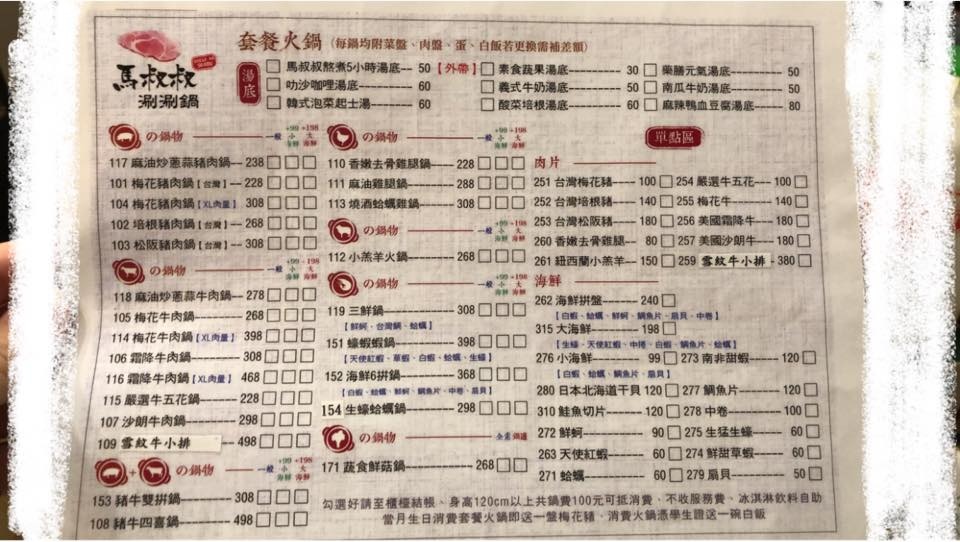 馬叔叔
涮涮鍋
套餐火鍋 (每鍋均附菜盤、肉盤、蛋、白飯若更換需補差額)
湯底
馬叔叔熬煮5小時湯底-- 50【外帶】
叻沙咖哩湯底--------- 60
韓式泡菜起士湯------- 60
素食蔬果湯底-------- 30
義式牛奶湯底-------- 50
酸菜培根湯底-------- 60
藥膳元氣湯底-- 50
南瓜牛奶湯底-- 50
麻辣鴨血豆腐湯底-- 80
の鍋物 一般 +99 小海鮮 +198 大海鮮
117 麻油炒蔥蒜豬肉鍋-- 238
101 梅花豬肉鍋【台灣】-- 228
104 梅花豬肉鍋【XL肉量】 308
102 培根豬肉鍋【台灣】-- 268
103 松阪豬肉鍋【台灣】-- 308
の鍋物 一般 +99 小海鮮 +198 大海鮮
118 麻油炒蔥蒜牛肉鍋-- 278
105 梅花牛肉鍋---------- 268
114 梅花牛肉鍋【XL肉量】 398
106 霜降牛肉鍋---------- 308
116 霜降牛肉鍋【XL肉量】 468
115 嚴選牛五花鍋-------- 228
107 沙朗牛肉鍋---------- 298
109 雪紋牛小排 ------ 498
+ の鍋物 一般 +99 小海鮮 +198 大海鮮
153 豬牛雙拼鍋---------- 308
108 豬牛四喜鍋---------- 498
の鍋物 一般 +99 小海鮮 +198 大海鮮
110 香嫩去骨雞腿鍋---- 228
111 麻油雞腿鍋--------- 288
113 燒酒蛤蠣雞鍋------- 308
の鍋物 一般 +99 小海鮮 +198 大海鮮
112 小羔羊火鍋---------- 268
の鍋物 一般 +99 小海鮮 +198 大海鮮
119 三鮮鍋------------- 308
【鮮蚵、台灣鯛、蛤蠣】
151 蠔蝦蝦鍋---------- 398
【天使紅蝦、草蝦、白蝦、蛤蠣、生蠔】
152 海鮮6拼鍋--------- 368
【白蝦、蛤蠣、鮮蚵、鯛魚片、中卷、扇貝】
154 生蠔蛤蠣鍋-------- 298
の鍋物 全素鍋邊
171 蔬食鮮菇鍋-------- 268
單點區
肉片
251 台灣梅花豬---- 100
252 台灣培根豬---- 140
253 台灣松阪豬---- 180
260 香嫩去骨雞腿-- 80
261 紐西蘭小羔羊-- 150
254 嚴選牛五花-- 100
255 梅花牛------- 140
256 美國霜降牛-- 180
257 美國沙朗牛-- 180
259 雪紋牛小排 - 380
海鮮
262 海鮮拼盤------- 240
【白蝦、蛤蠣、鮮蚵、鯛魚片、扇貝、中卷】
315 大海鮮--------- 198
【生蠔、天使紅蝦、中捲、白蝦、鯛魚片、蛤蠣】
276 小海鮮--------- 99
【白蝦、蛤蠣、鯛魚片、扇貝】
280 日本北海道干貝 120
310 鮭魚切片------ 120
272 鮮蚵----------- 90
263 天使紅蝦------ 60
271 蛤蠣----------- 60
273 南非甜蝦---- 120
277 鯛魚片------- 120
278 中卷--------- 100
275 生猛生蠔---- 60
274 鮮甜草蝦---- 60
279 扇貝--------- 50
勾選好請至櫃檯結帳、身高120cm以上共鍋費100元可抵消費、不收服務費、冰淇淋飲料自助
當月生日消費套餐火鍋即送一盤梅花豬、消費火鍋憑學生證送一碗白飯